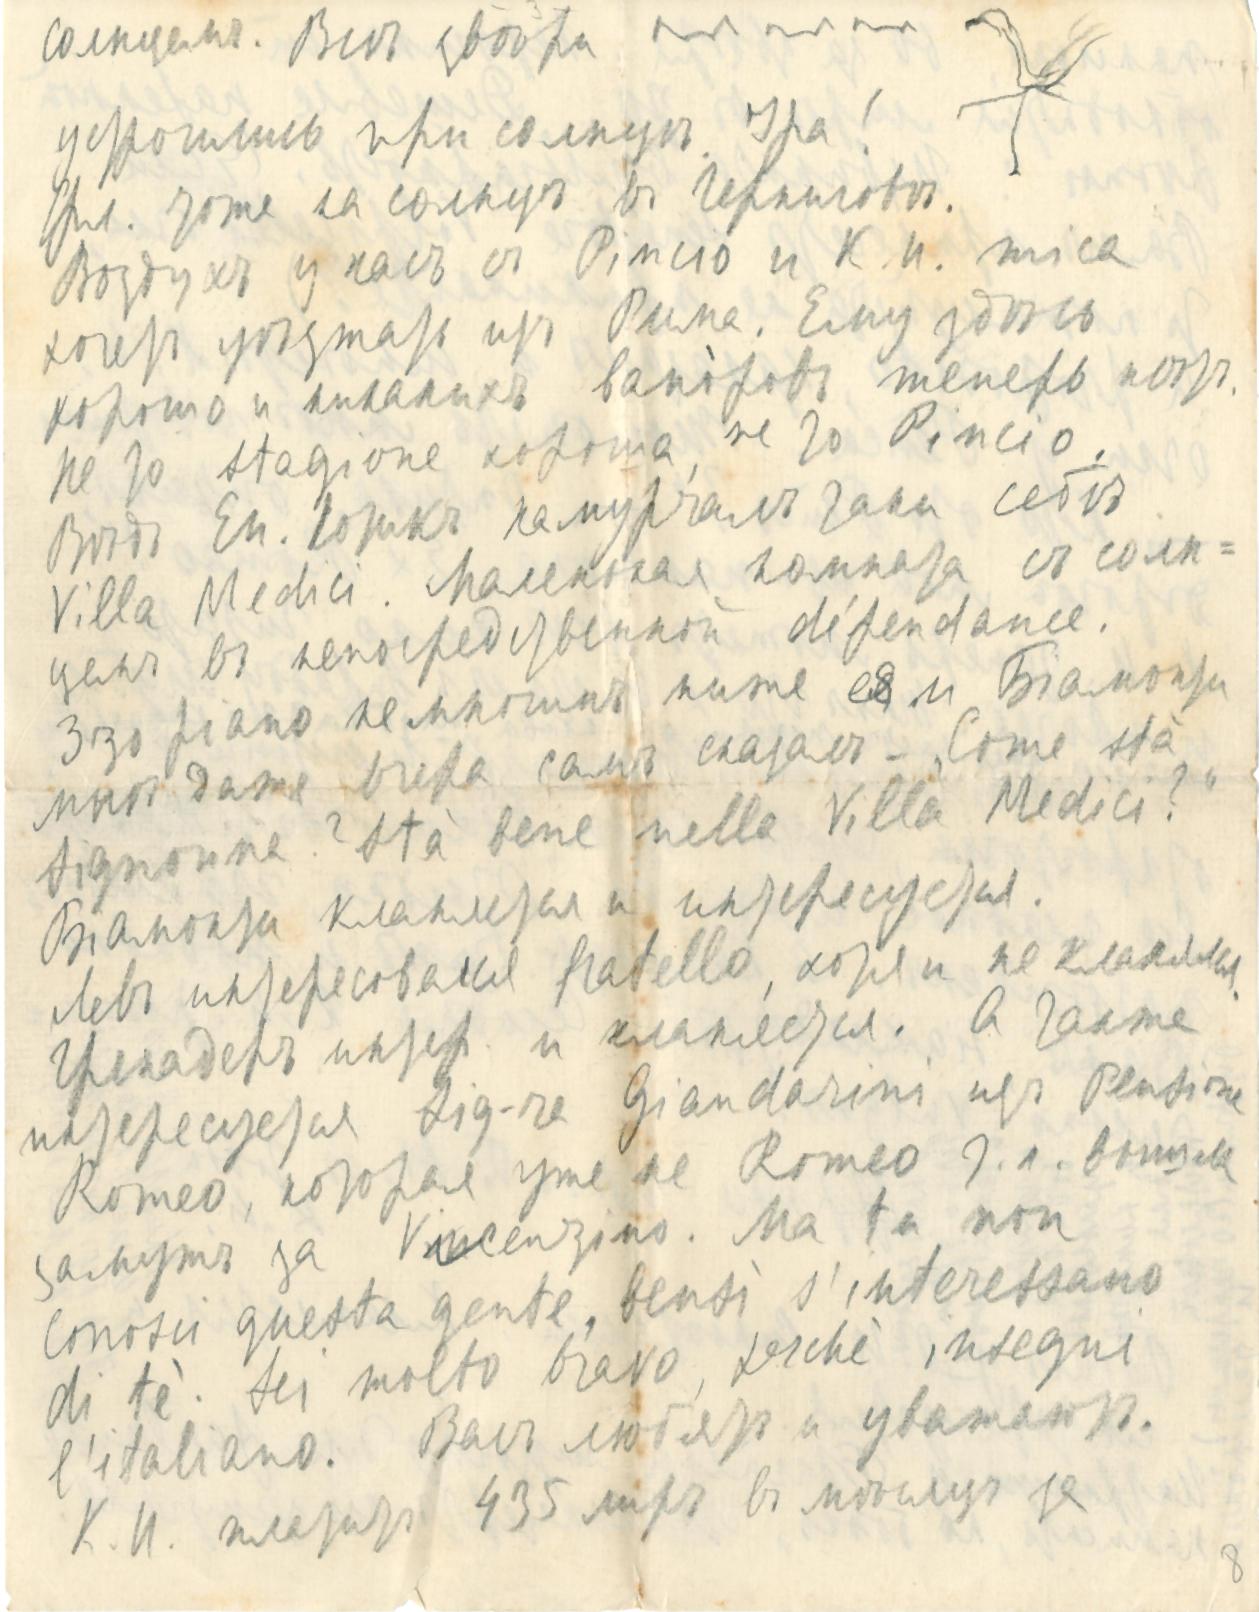 солнцемъ. Всѣ
устроились при солнцѣ. Ура!
тоже на солнцѣ въ Черниговѣ.
Воздухъ у насъ съ Pincio и К. И. mica
хочетъ уѣзжать изъ Рима. Ему здѣсь
хорошо и никакихъ теперь нѣтъ.
Не то stagione хороша, не то Pincio.
Вѣдь Ел. намурчалъ таки себѣ
Villa Medici. Маленькая комната съ солн=
цемъ въ непосредственной dépendance.
Это piano немногимъ ниже и Біамонти
мнѣ даже вчера самъ сказалъ – „Come stà
signorina? Stà bene nella Villa Medici?“
Біамонти кланяется и интересуется.
Левъ интересовался fratello, хотя и не кланялся.
Гренадеръ интер. и кланяется. А также
интересуется Sig-ra Giandarini изъ Pensione
Romeo, которая уже не Romeo т. к. вышла
замужъ за Vincenzino. Ma tu non
conosci questa gente, bensì s'interessano
di tè. Sei molto bravo, perchè insegni
l'italiano. Васъ любятъ и уважаютъ.
К. И. платитъ 435 лиръ въ мѣсяцъ за
8